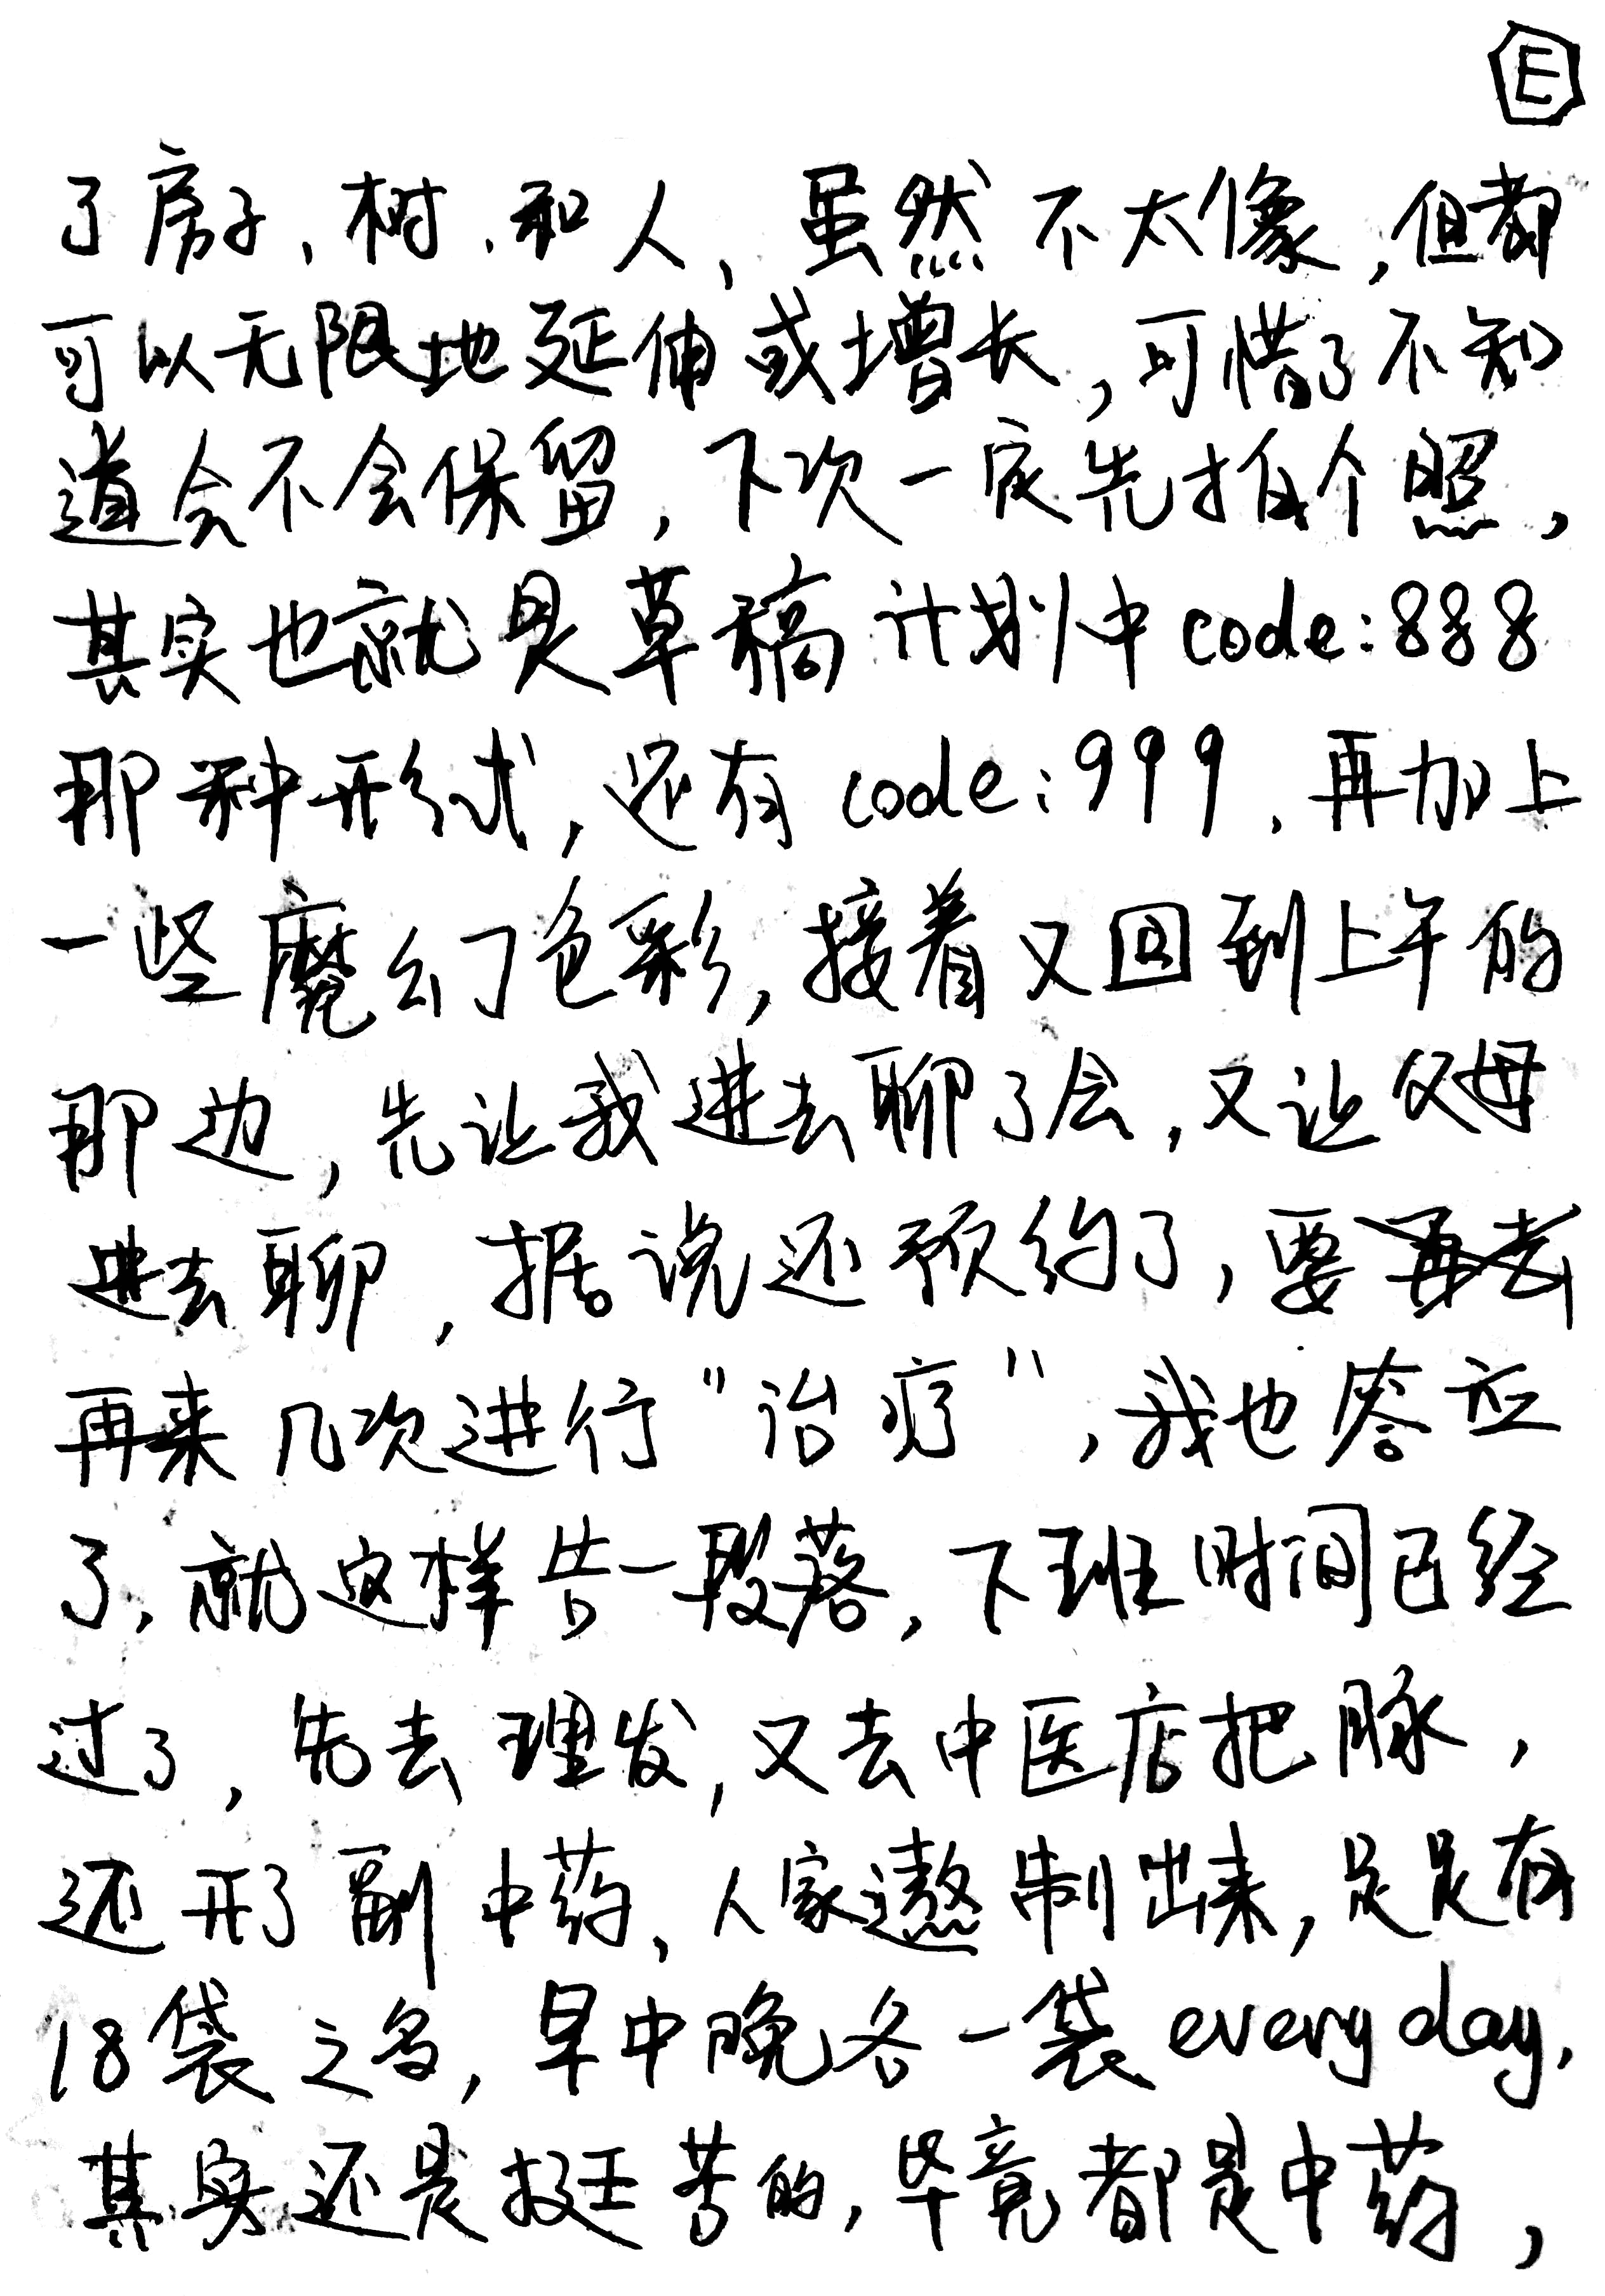 E
了房子、树、和人、虽然不太像,但都
可以无限地延伸或增长,可惜了不知
道会不会保留,下次一定先拍个照,
其实也就是草稿计划中code:888
那种形式,还有code:999.再加上
一些魔幻色彩,接着又回到上午的
那边,先让我进去聊了会,又让父母
进去聊,据说还预约了,要
再来几次进行"治疗",我也答应
了,就这样告一段落,下班时间已经
过了,先去理发,又去中医店把脉,
还开了副中药、人家遨制出来,足足有
18袋之多,早中晚各一袋every day,
其实还是挺苦的,毕竟都是中药,